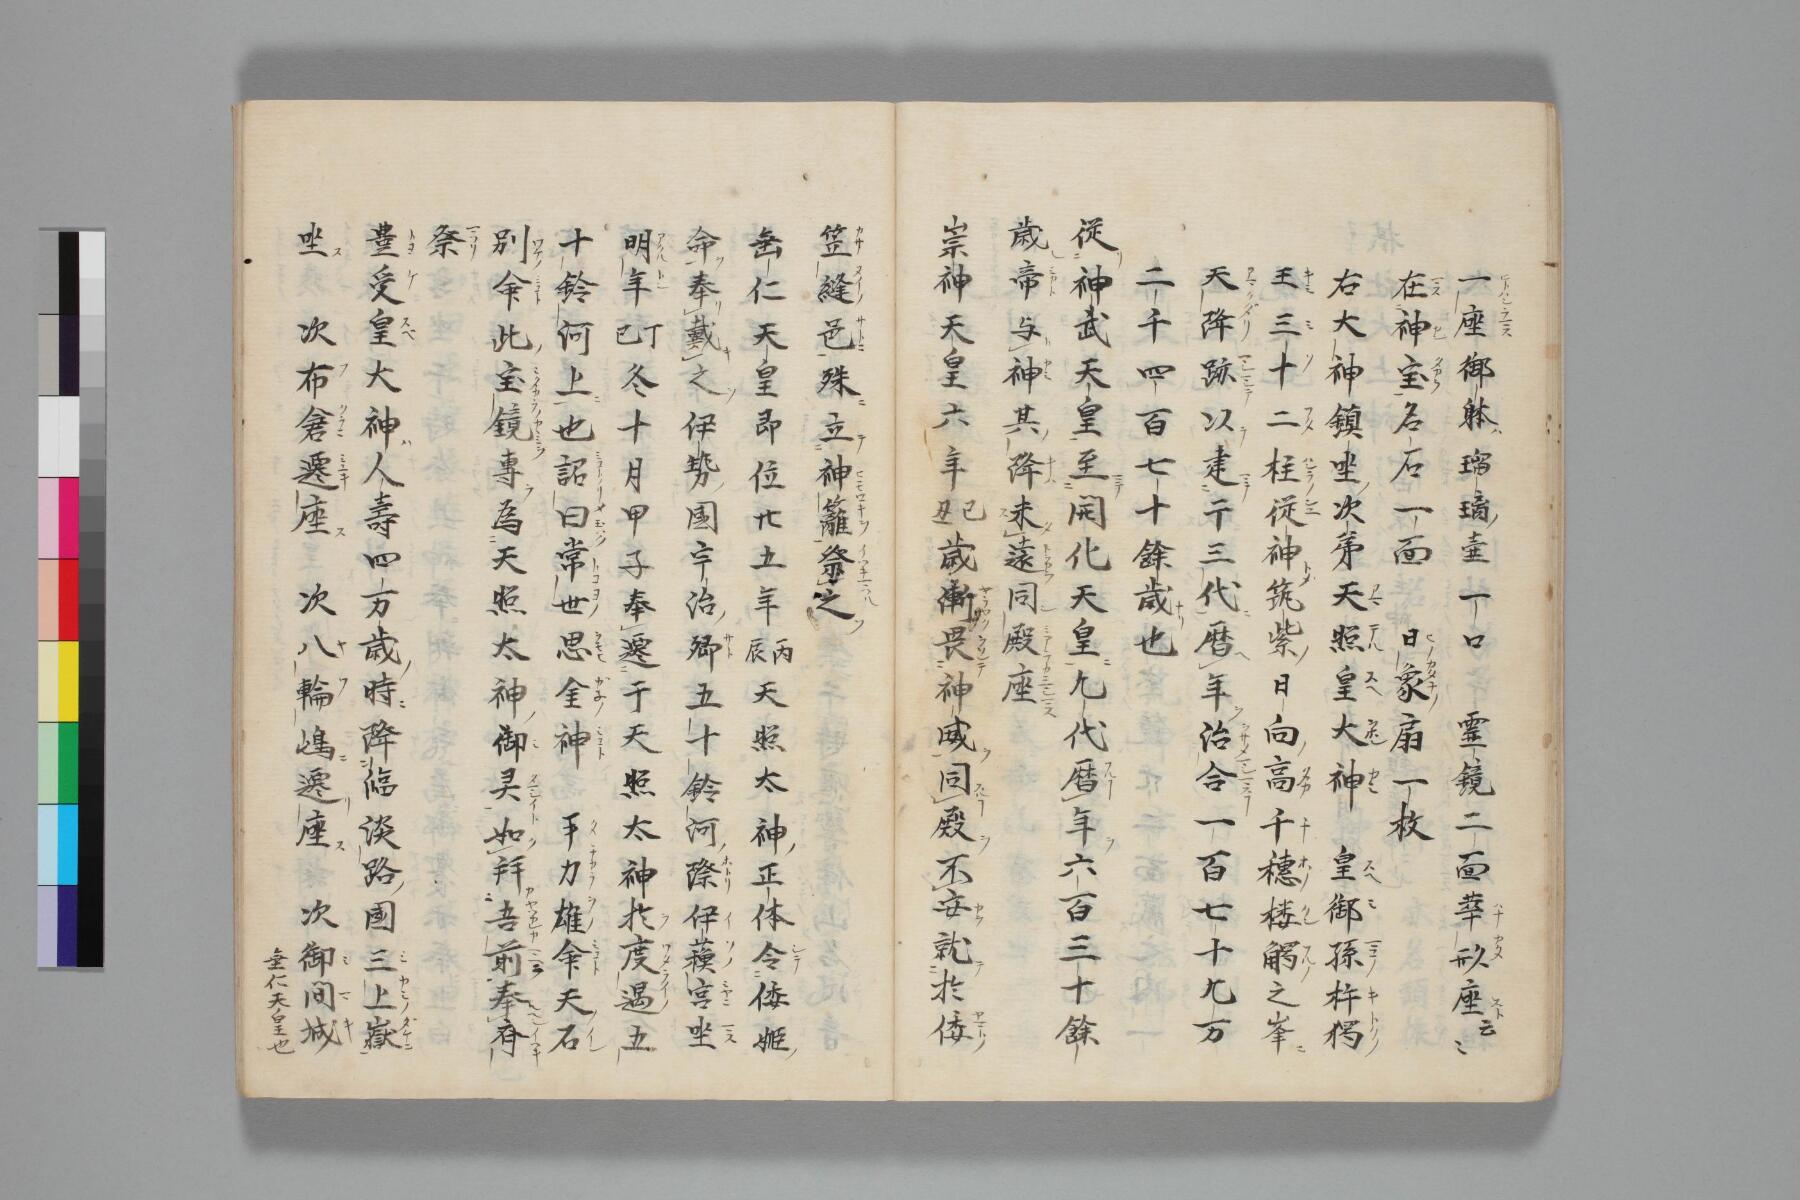 一座御躰瑠璃壺一口 霊鏡二面華形座云
在神宝名石一面 日象扇一枚
右大神鎮坐次第天照皇大神 皇御孫杵独
王三十二柱従神筑紫日向高千穂楼觸之峯
天降跡以建于三代暦年治合一百七十九万
二千四百七十餘歳也
従神武天皇至開化天皇九代暦年六百三十餘
歳帝与神其降来遠同殿座
崇神天皇六年己丑歳漸畏神威同殿不安就於倭
笠縫邑殊立神籬祭之
垂仁天皇即位廿五年丙辰天照太神正体令倭姫
命奉戴之伊勢国宇治郷五十鈴河際伊蘓宮坐
明年丁巳冬十月甲子奉遷于天照太神於度遇五
十鈴河上也詔曰常世思金神 手力雄命天石
別命此宝鏡専為天照太神御灵如拝吾前奉斎
祭
豊受皇大神人壽四万歳時降臨淡路国三上嶽
坐 次布倉遷座 次八輪嶋遷座 次御間城
垂仁天皇也